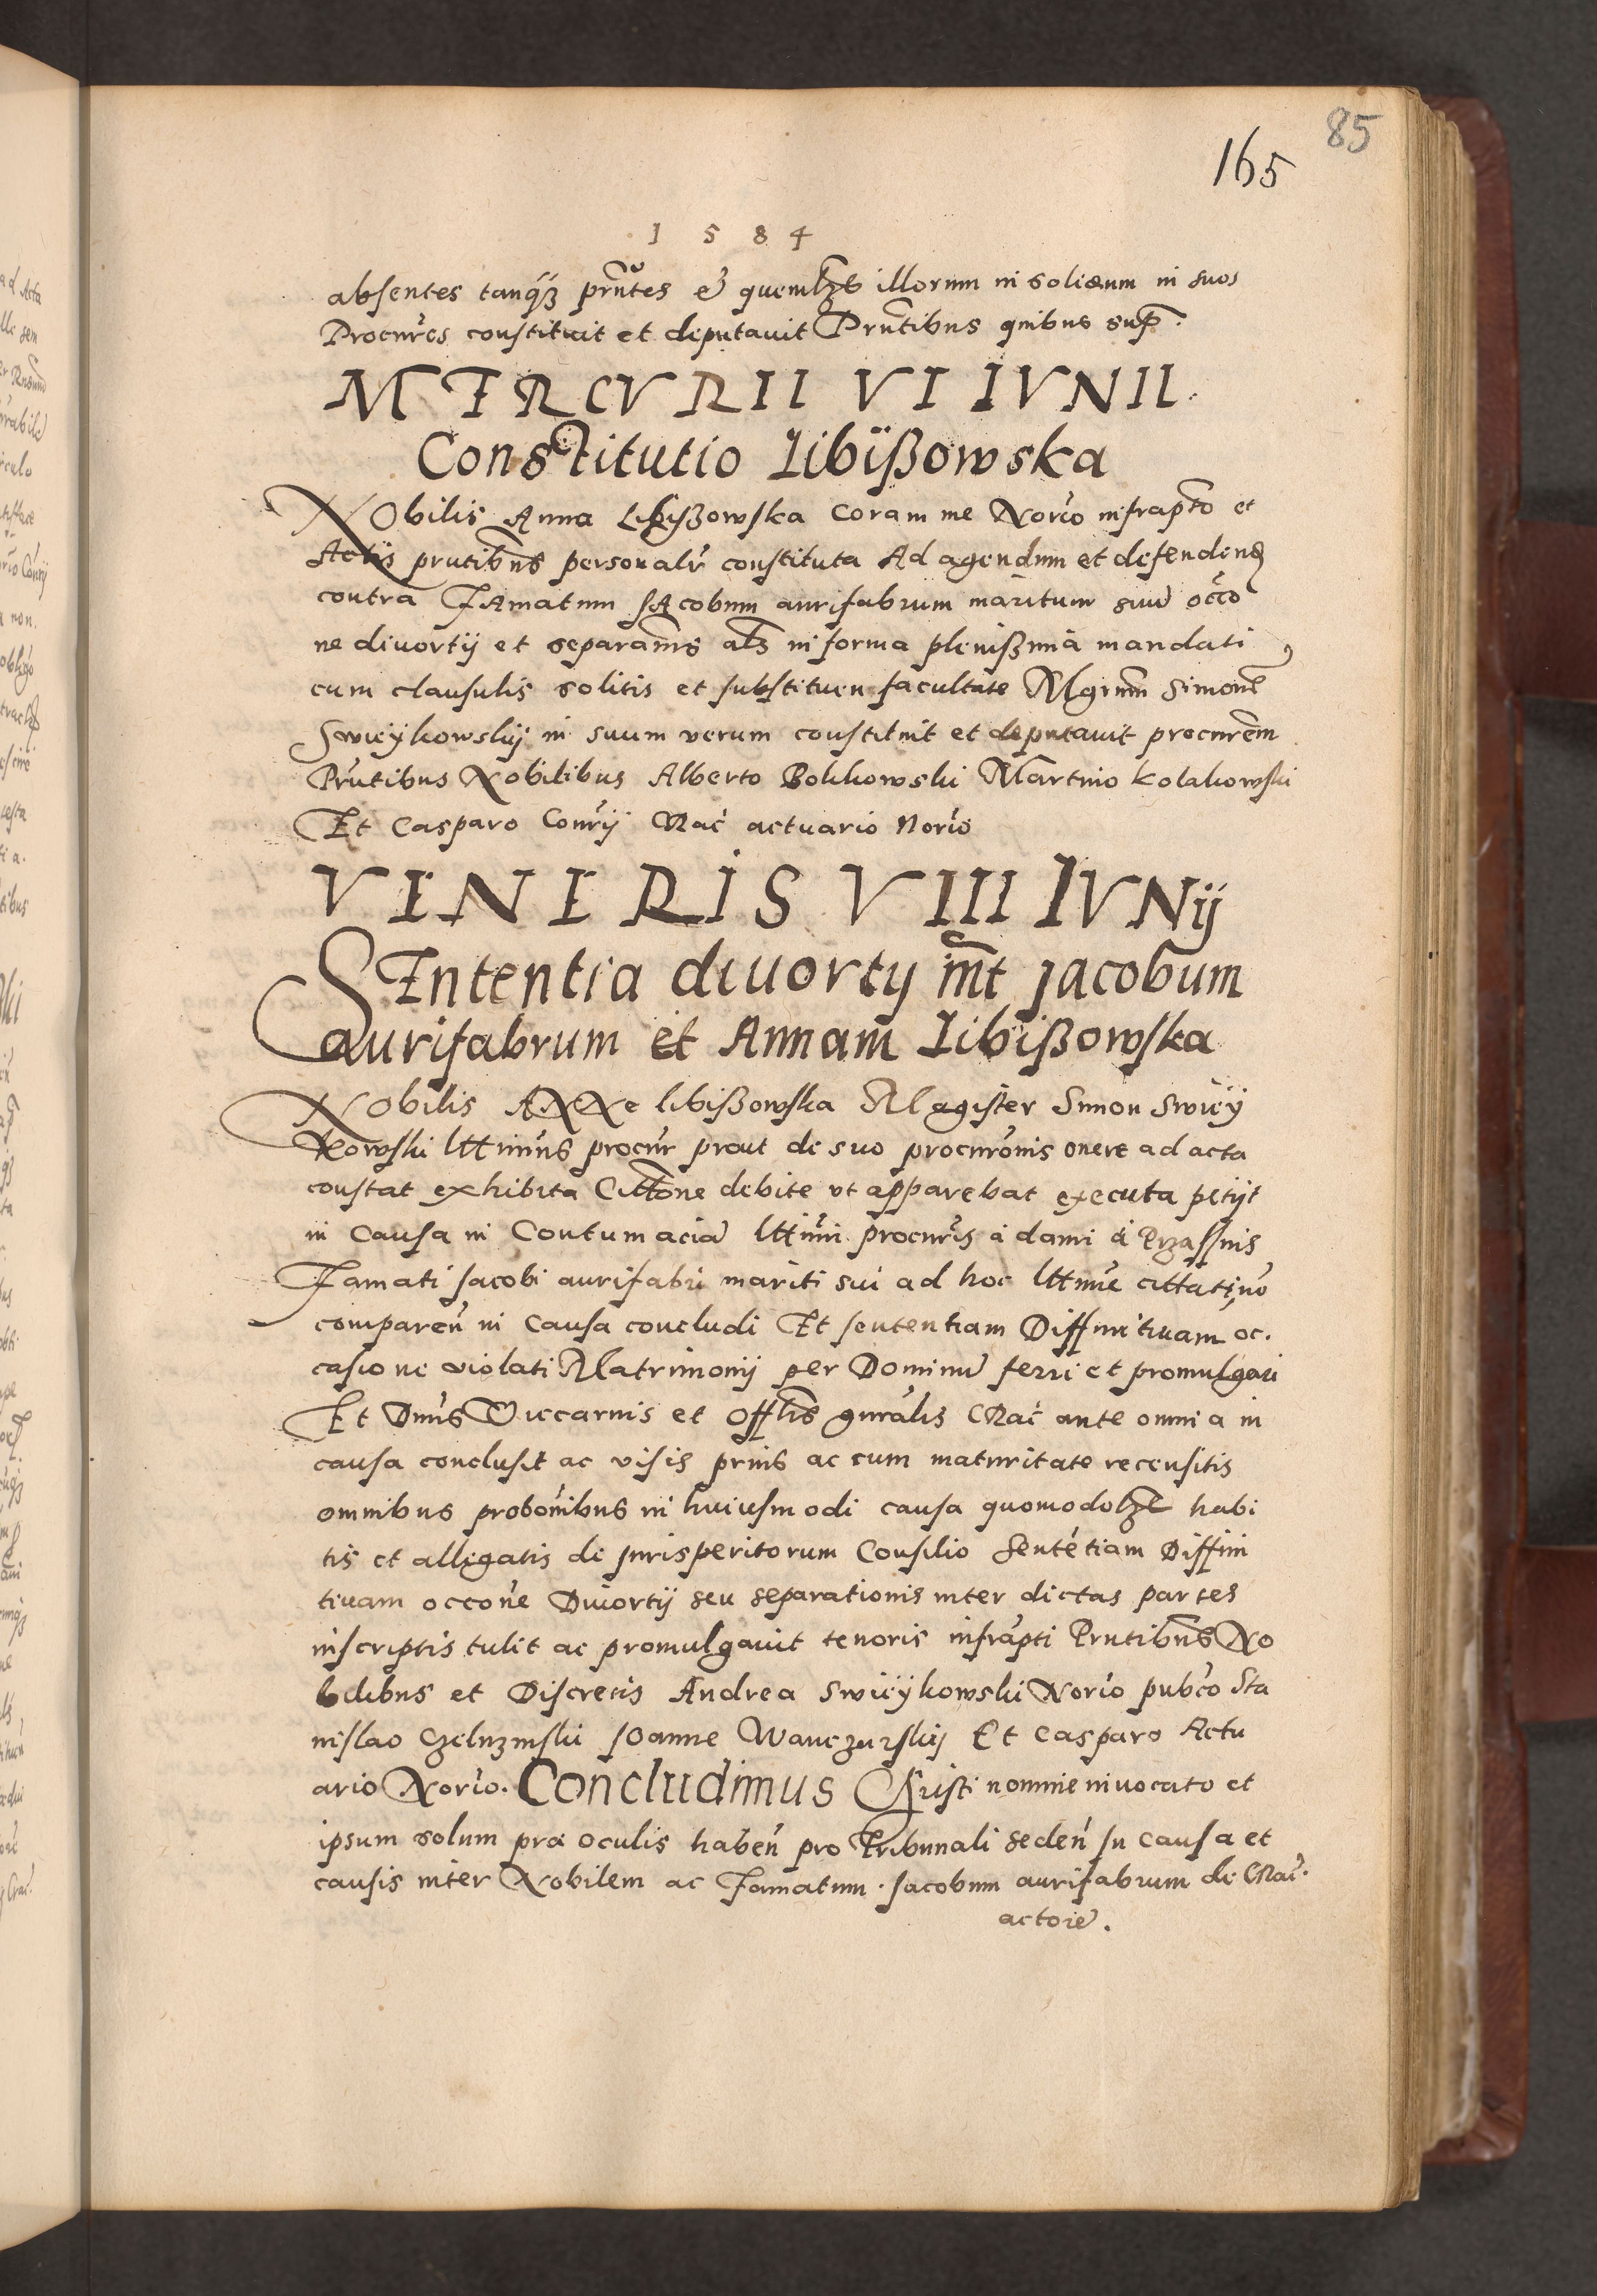 85
165
1 5 8 4
absentes tanq̃ꝫ prn̄tes et quemlꝫt illorum in solidum in suos
Procurr̃es constituit et deputavit Prñtibus quibus supˢ.
MERCVRII VI IVNII.
Constitutio Libißowska
NObilis Anna Libißowska Coram me Norio infrapto et
Actis prñtibus personalr̃ constituta Ad agendum et defendend
contra FAmatum IAcobum aurifabrum maritum suũ occõ
ne divortij et separãnis als in forma plenißima mandati
cum clausulis solitis et substituen facultate Mgrum Simonẽ
Swieykowskij in suum verum constituit et deputavit procurẽm
Prñtibus Nobilibus Alberto Bokkowski Martino Kolakowski
Et Casparo Conrij Crac̃ actuario Norio
VENERIS VIII IVNij
SEntentia divorty int̃ Jacobum
aurifabrum et Annam Libißowska
Nobilis ANNe libißowska Magister Simon Swiey
kowski lttimus procur prout de suo procurõnis onere ad acta
constat exhibita Cittõne debite vt apparebat executa petijt
in Causa in Contumaciã lttimi procuris adami à Przassnis
Famati Jacobi aurifabri mariti sui ad hoc lttime cittati nõ
comparen̄ in Causa concludi Et sententiam Diffinitivam oc.
casione violati Matrimonij per Dominũ ferri et promulgari
Et Dn̄us Viccarius et Offlis gnralis Crac̃ ante omnia in
causa conclusit ac visis prius ac cum maturitate recensitis
omnibus probõnibus in huiusmodi causa quomodolꝫt habi
tis et allegatis de jurisperitorum Consilio Sentẽtiam Diffini
tivam occõne Divortij seu separationis inter dictas partes
inscriptis tulit ac promulgavit tenoris infrapti Prñtibus No
bilibus et Discretis Andrea Swieykowski Norio pubco Sta
nislao Czeluzinski Joanne Wanczurskij Et Casparo Actu
ario Norio. Concludimus Christi nomine invocato et
ipsum solum præ oculis haben̄ pro Tribunali seden̄ In Causa et
causis inter Nobilem ac Famatum Jacobum aurifabrum de Crac̃.
actorẽ.